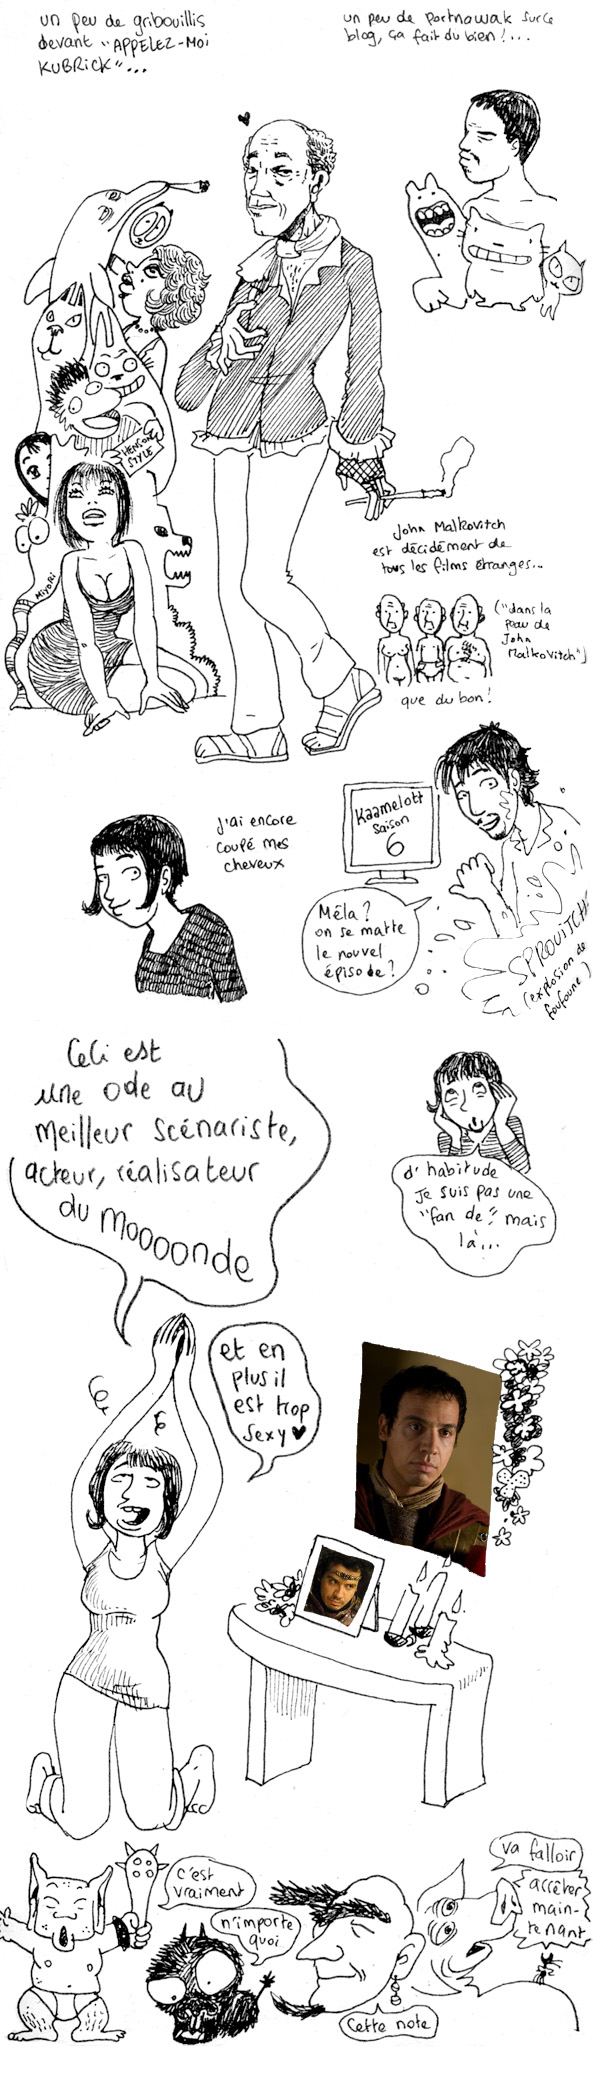 un peu de gribouillis
devant "APPELEZ-MOI
KUBRICK"...
un peu de portnawak sur ce
blog, ça fait du bien!...
HENSON
STYLE
MIYORI
John Malkovitch
est décidément de
tous les films étranges...
("dans la
peau de
John
Malkovitch")
que du bon!
j'ai encore
coupé mes
cheveux
Kaamelott
saison
6
Méla?
on se matte
le nouvel
épisode?
SPROUITCH
(explosion de
foufoune)
Ceci est
une ode au
meilleur scénariste,
acteur, réalisateur
du moooonde
d'habitude
je suis pas une
"fan de" mais
là...
et en
plus il
est trop
sexy ♥
c'est
vraiment
n'importe
quoi
cette note
va falloir
arrêter
main-
tenant